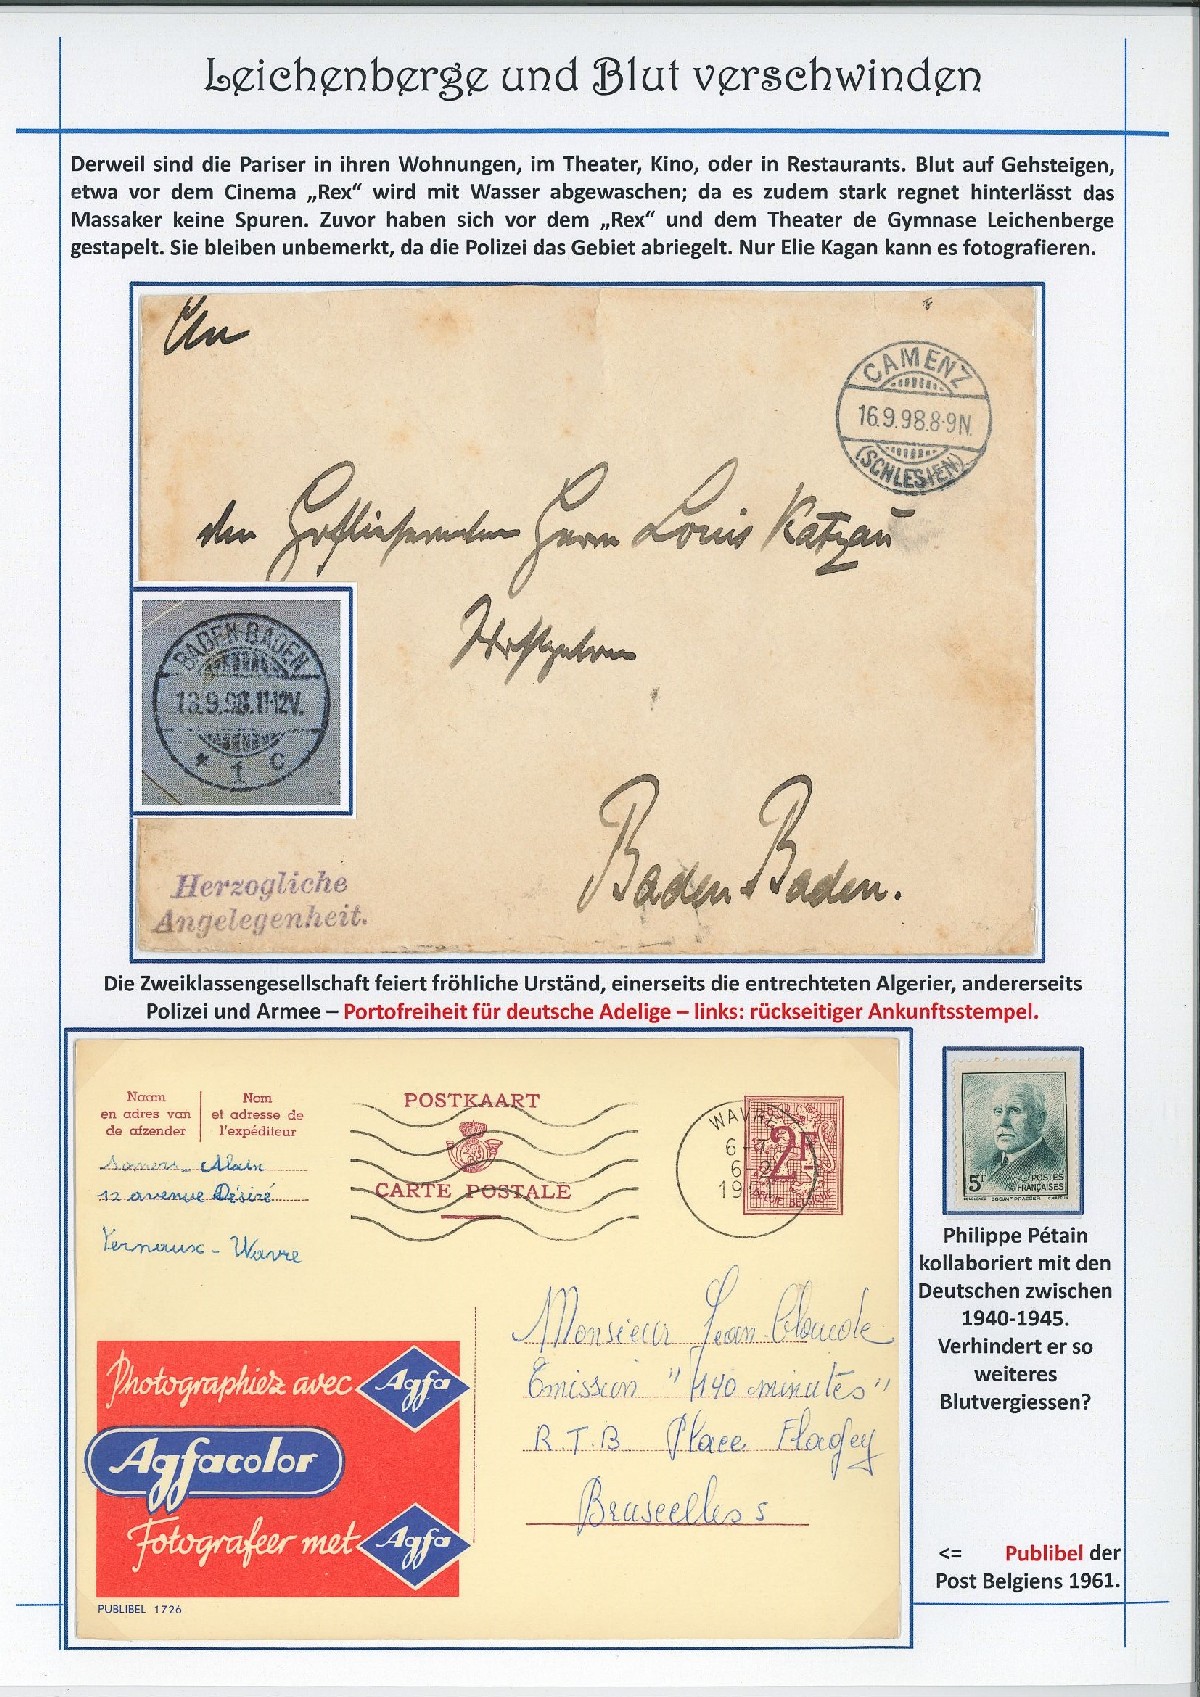 Leichenberge und Blut verschwinden
Derweil sind die Pariser in ihren Wohnungen, im Theater, Kino, oder in Restaurants. Blut auf Gehsteigen,
etwa vor dem Cinema „Rex“ wird mit Wasser abgewaschen; da es zudem stark regnet hinterlässt das
Massaker keine Spuren. Zuvor haben sich vor dem „Rex“ und dem Theater de Gymnase Leichenberge
gestapelt. Sie bleiben unbemerkt, da die Polizei das Gebiet abriegelt. Nur Elie Kagan kann es fotografieren.
An
CAMENZ
16.9.98.8-9N.
(SCHLESIEN)
den Herrn Louis Katzau
BADEN BADEN
18.9.98.11-12V.
* 1 c
Baden-Baden.
Herzogliche
Angelegenheit.
Die Zweiklassengesellschaft feiert fröhliche Urständ, einerseits die entrechteten Algerier, andererseits
Polizei und Armee – Portofreiheit für deutsche Adelige – links: rückseitiger Ankunftsstempel.
Naam
en adres van
de afzender
Nom
et adresse de
l'expéditeur
POSTKAART
CARTE POSTALE
WAVRE
2F
Alain
12 avenue Désiré
Vernaux - Wavre
Monsieur Jean Claude
Emission "140 minutes"
R.T.B Place Flagey
Bruxelles 5
Photographiez avec Agfa
Agfacolor
Fotografeer met Agfa
PUBLIBEL 1726
5F
POSTES
FRANÇAISES
Philippe Pétain
kollaboriert mit den
Deutschen zwischen
1940-1945.
Verhindert er so
weiteres
Blutvergiessen?
<= Publibel der
Post Belgiens 1961.